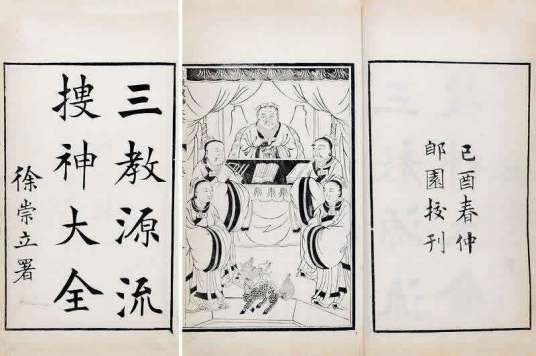 三教源流
搜神大全
徐崇立署
己酉春仲
郋園挍刊